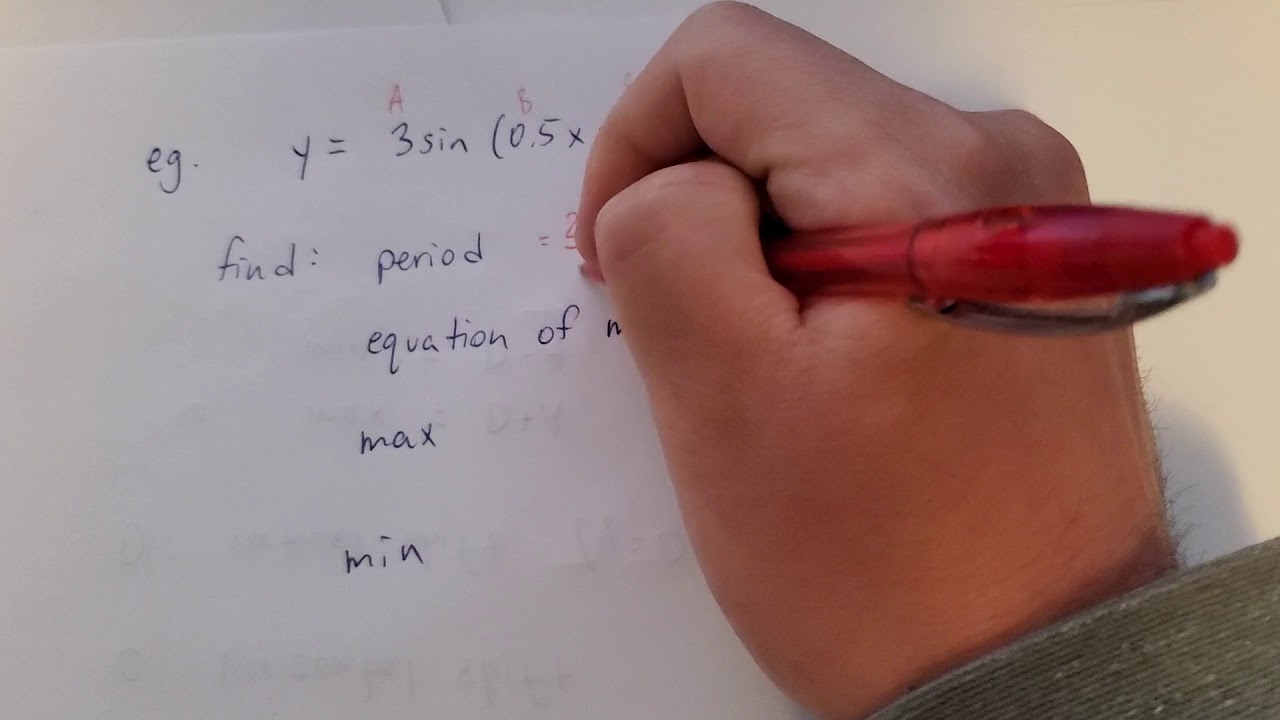 A B
eg. y = 3sin (0.5x
find: period =
equation of
max
min